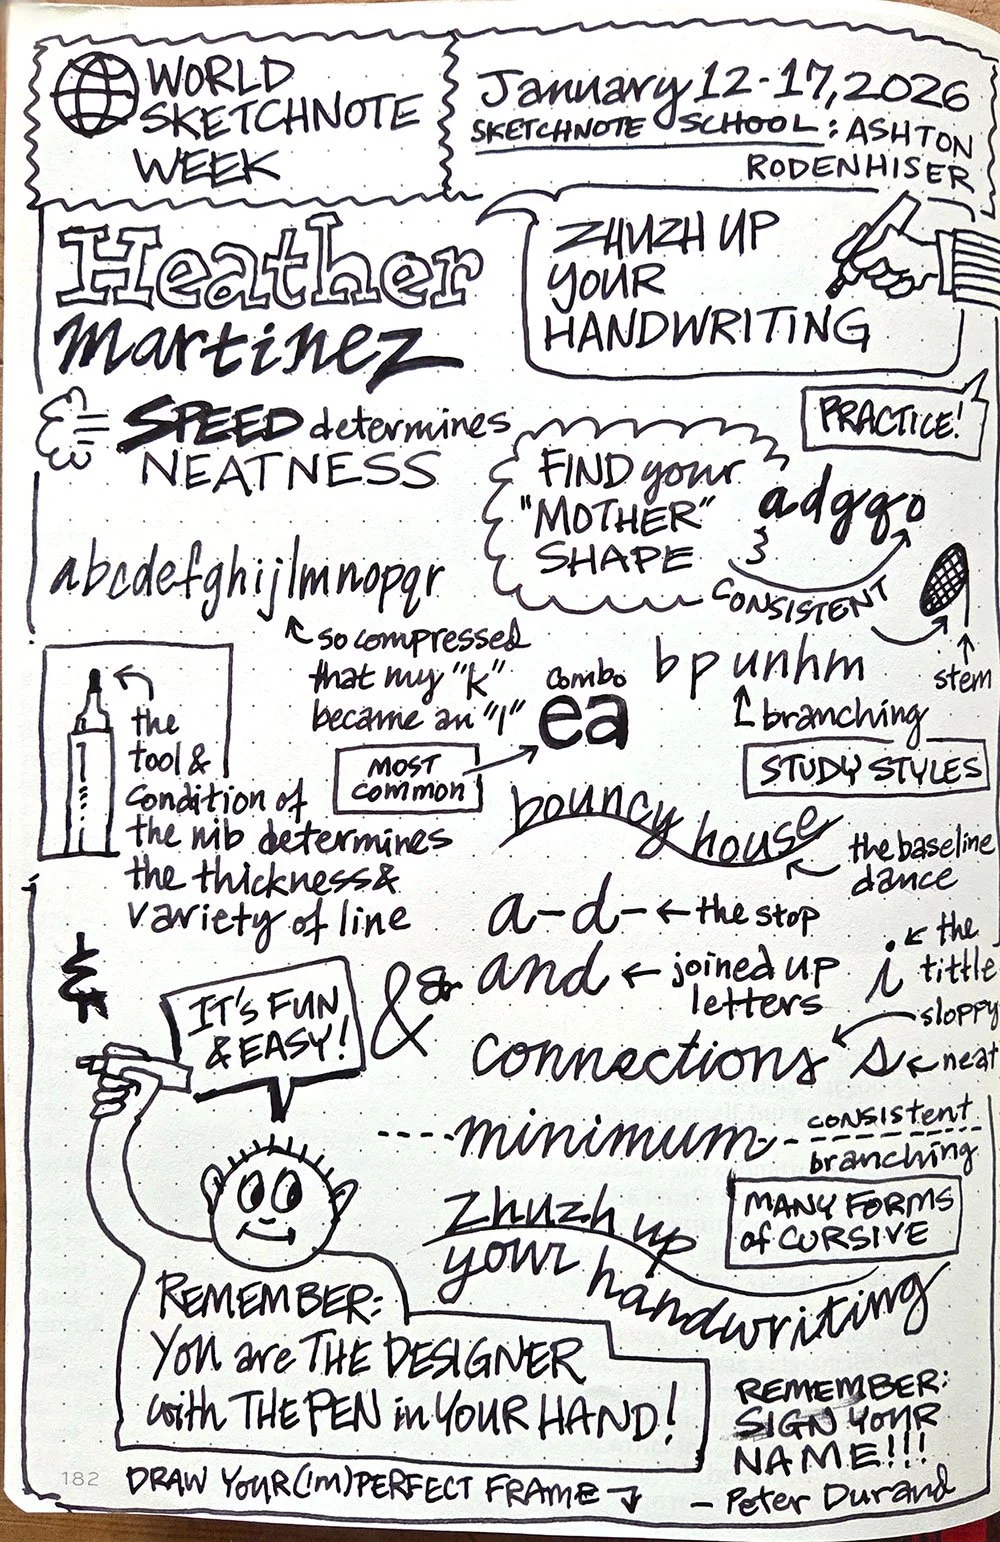 WORLD
SKETCHNOTE
WEEK
January 12-17, 2026
SKETCHNOTE SCHOOL: ASHTON
RODENHISER
Heather
Martinez
ZHUZH UP
YOUR
HANDWRITING
PRACTICE!
SPEED determines
NEATNESS
FIND your
"MOTHER"
SHAPE
adgqo
CONSISTENT
abcdefghijlmnopqr
so compressed
that my "k"
became an "l"
bpunhm
stem
branching
combo
ea
MOST
common
STUDY STYLES
the
tool &
condition of
the nib determines
the thickness &
variety of line
bouncy house
the baseline
dance
a-d- ← the stop
and ← joined up
letters
i
the
tittle
& &
&
IT'S FUN
& EASY!
connections
s
sloppy
neat
minimum
consistent
branching
MANY FORMS
of CURSIVE
zhuzh up
your handwriting
REMEMBER:
YOU are THE DESIGNER
with THE PEN in YOUR HAND!
REMEMBER:
SIGN YOUR
NAME!!!
- Peter Durand
182
DRAW YOUR (IM)PERFECT FRAME